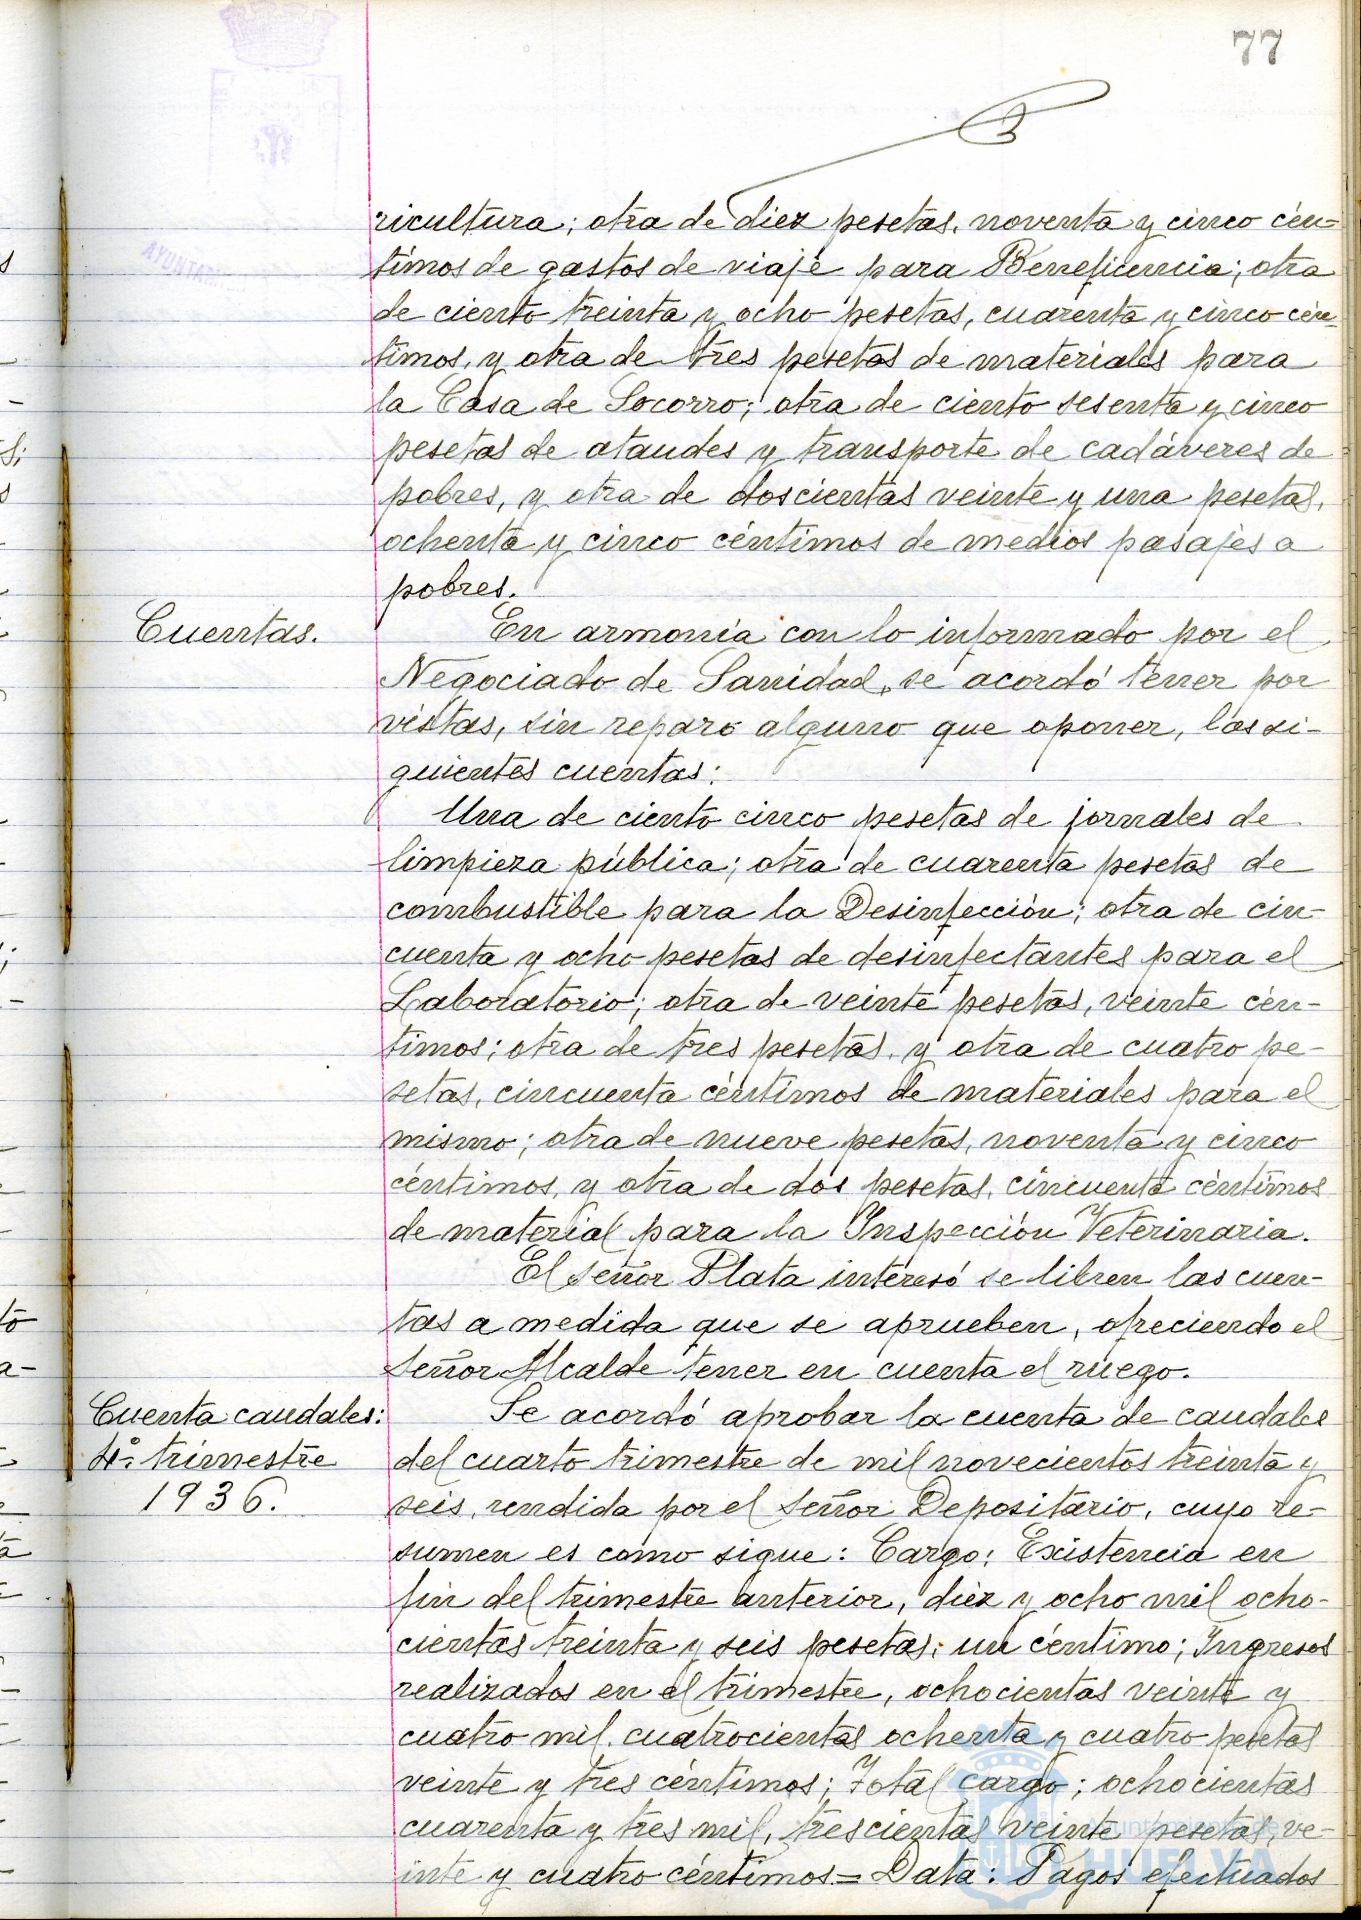 77
ricultura; otra de diez pesetas, noventa y cinco cén=
timos de gastos de viaje para Beneficencia; otra
de ciento treinta y ocho pesetas, cuarenta y cinco cén=
timos, y otra de tres pesetas de materiales para
la Casa de Socorro; otra de ciento sesenta y cinco
pesetas de ataudes y transporte de cadáveres de
pobres, y otra de doscientas veinte y una pesetas,
ochenta y cinco céntimos de medios pasajes a
pobres.
Cuentas.
En armonía con lo informado por el
Negociado de Sanidad, se acordó tener por
vistas, sin reparo alguno que oponer, las si-
guientes cuentas:
Una de ciento cinco pesetas de jornales de
limpieza pública; otra de cuarenta pesetas de
combustible para la Desinfección; otra de cin-
cuenta y ocho pesetas de desinfectantes para el
Laboratorio; otra de veinte pesetas, veinte cén-
timos; otra de tres pesetas, y otra de cuatro pe-
setas, cincuenta céntimos de materiales para el
mismo; otra de nueve pesetas, noventa y cinco
céntimos, y otra de dos pesetas, cincuenta céntimos
de material para la Inspección Veterinaria.
El señor Plata interesó se libren las cuen-
tas a medida que se aprueben, ofreciendo el
señor Alcalde tener en cuenta el ruego.
Cuenta caudales:
4º trimestre
1936.
Se acordó aprobar la cuenta de caudales
del cuarto trimestre de mil novecientos treinta y
seis, rendida por el señor Depositario, cuyo re-
sumen es como sigue: Cargo: Existencia en
fin del trimestre anterior, diez y ocho mil ocho-
cientas treinta y seis pesetas, un céntimo; Ingresos
realizados en el trimestre, ochocientas veinte y
cuatro mil, cuatrocientas ochenta y cuatro pesetas
veinte y tres céntimos; Total cargo; ochocientas
cuarenta y tres mil, trescientas veinte pesetas, ve-
inte y cuatro céntimos.= Data: Pagos efectuados
Ayuntamiento de
HUELVA